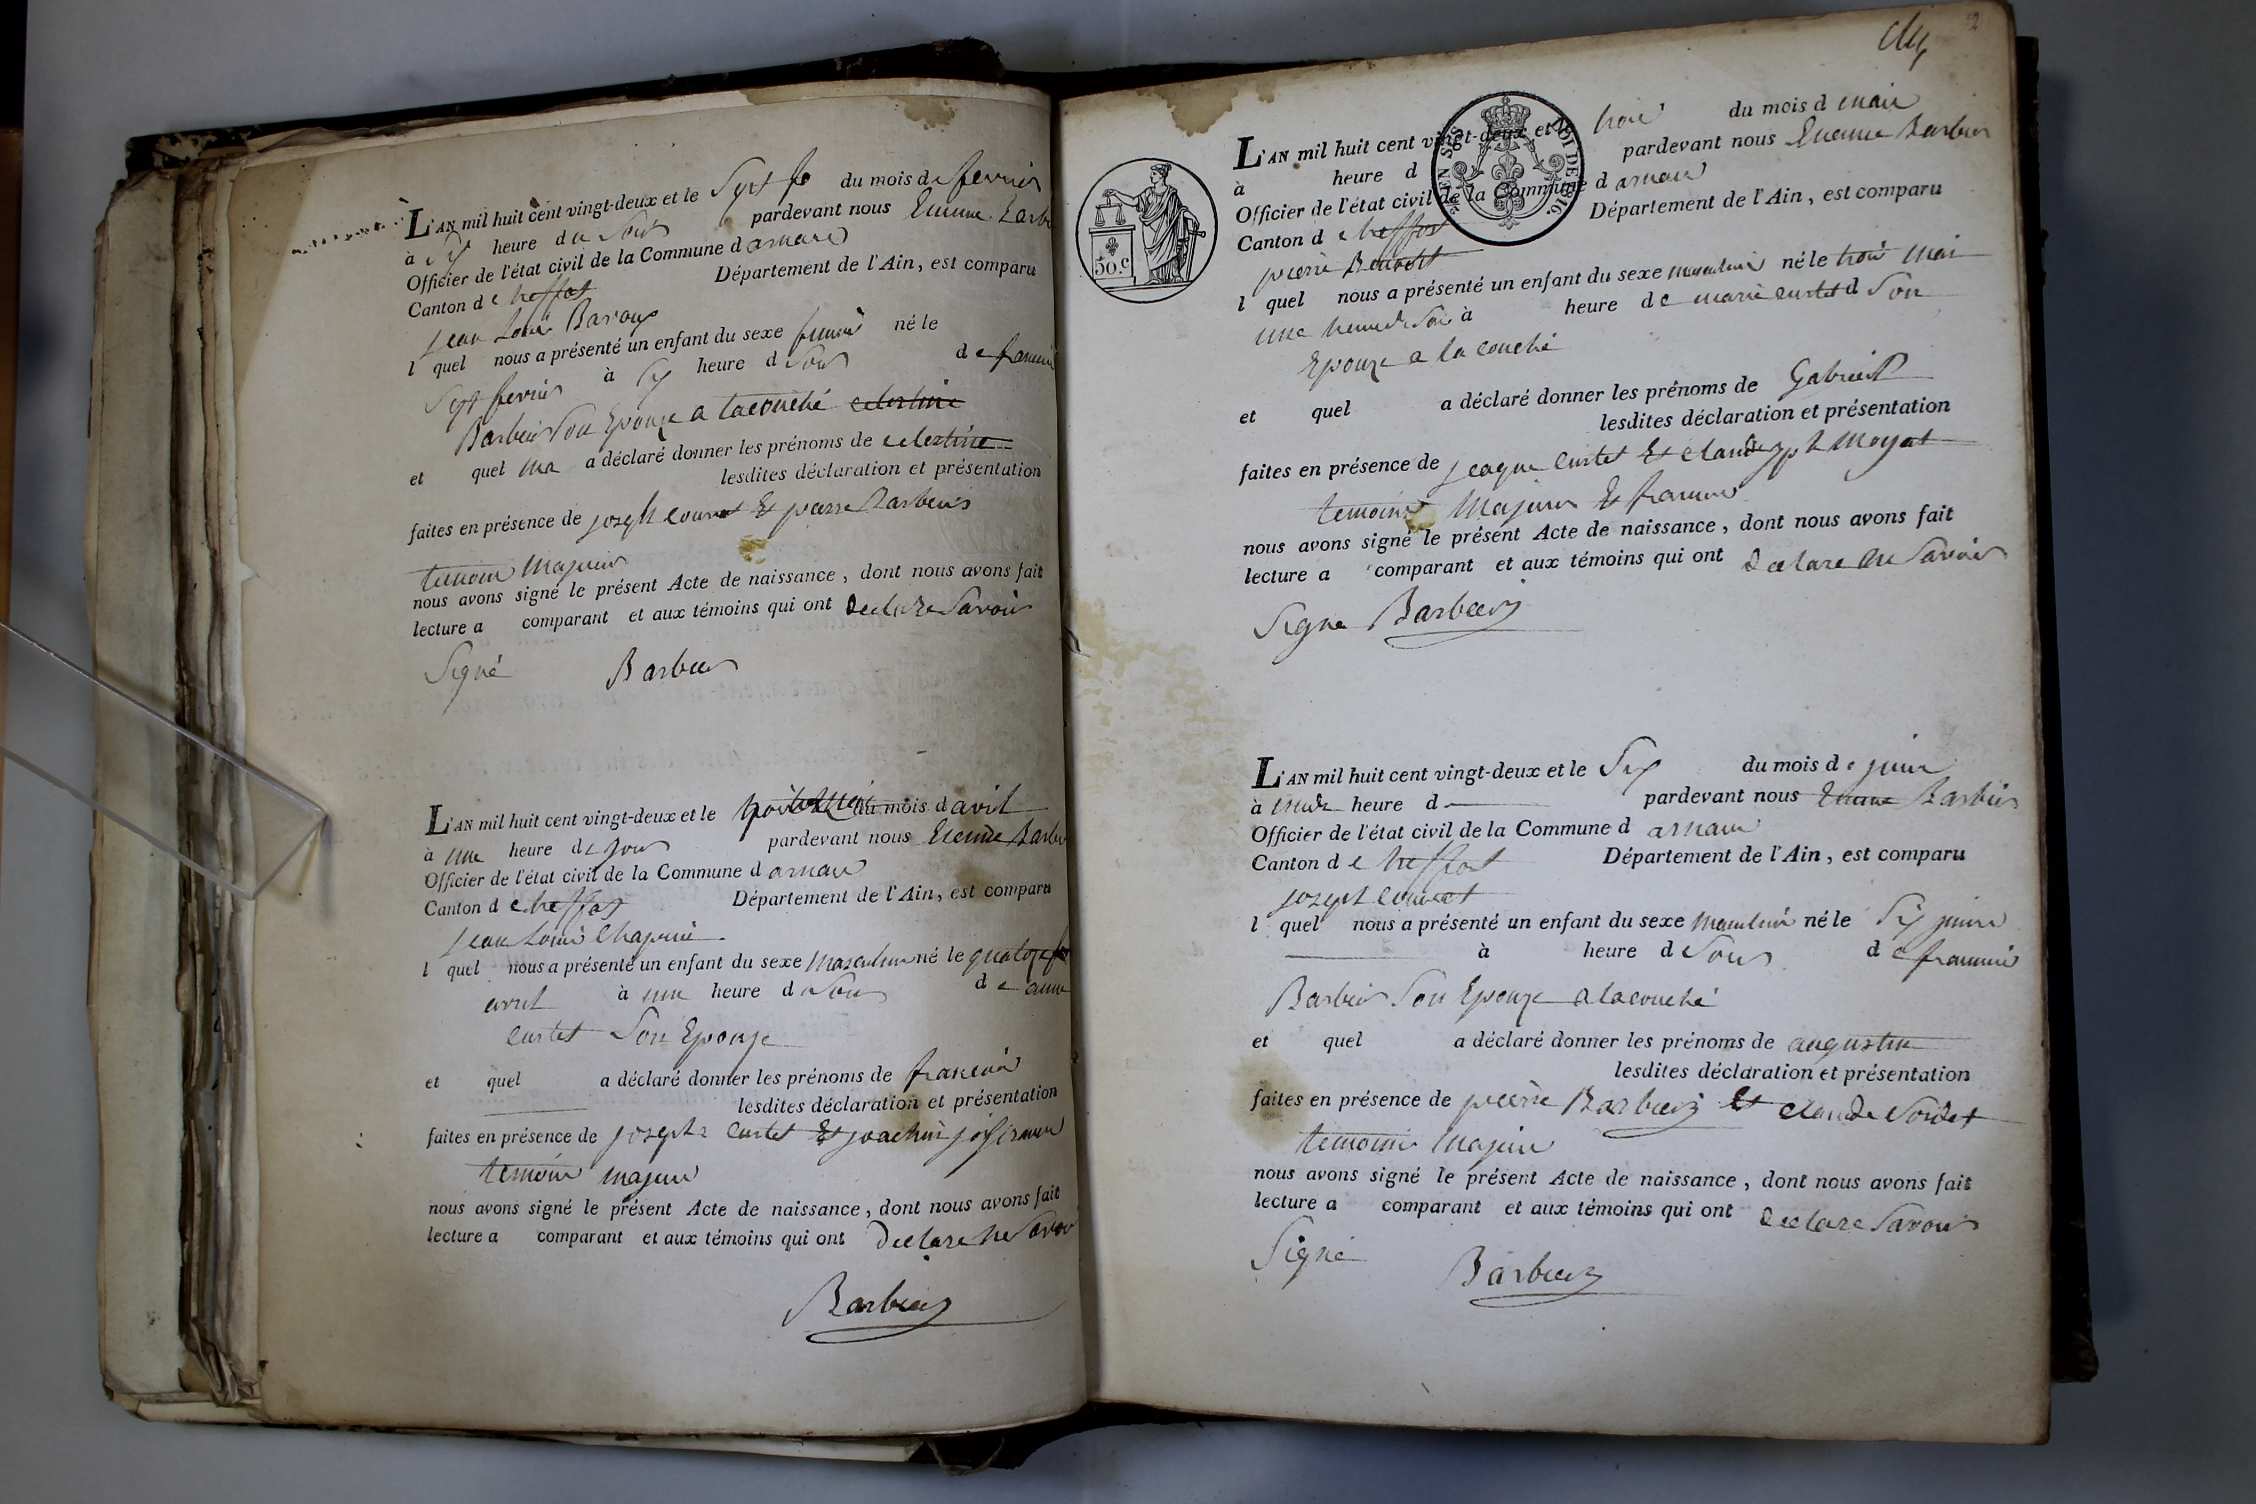 L'AN mil huit cent vingt-deux et le Sept fe du mois de fevrier
à Six heure du Soir pardevant nous Etienne Barb
Officier de l'état civil de la Commune d arnan
Canton d e treffort Département de l'Ain, est comparu
jean Louis Baroux
l quel nous a présenté un enfant du sexe feminin né le
Sept fevrier à Six heure d Soir d e francoise
Barbier Son Epouze a lacouché celestine
et quel ma a déclaré donner les prénoms de celestine
lesdites déclaration et présentation
faites en présence de joseph couvat Et pierre Barbier
temoin Majeur
nous avons signé le présent Acte de naissance, dont nous avons fait
lecture a comparant et aux témoins qui ont declaré Savoir
Signé Barbier
L'AN mil huit cent vingt-deux et le du mois d avril
à une heure de jour pardevant nous Etienne Barbier
Officier de l'état civil de la Commune d arnan
Canton d e treffort Département de l'Ain, est comparu
jean Louis Chapuis
l quel nous a présenté un enfant du sexe Masculin né le quatorze
avril à une heure d Soir d e anne
curtet Son Epouze
et quel a déclaré donner les prénoms de francois
lesdites déclaration et présentation
faites en présence de joseph curtet Et joachim
temoin majeur
nous avons signé le présent Acte de naissance, dont nous avons fait
lecture a comparant et aux témoins qui ont declare ne Savoir
Barbier
2
L'AN mil huit cent vingt-deux et le trois du mois d mai
à heure d pardevant nous Etienne Barbier
Officier de l'état civil de la Commune d arnan
Canton d e treffort Département de l'Ain, est comparu
50.c
pierre Bouvert
l quel nous a présenté un enfant du sexe masculin né le trois mai
une heure de Soir à heure d e marie curtet d Son
Epouze a la couché
et quel a déclaré donner les prénoms de Gabriel
lesdites déclaration et présentation
faites en présence de jeaque curtet Et claude jph Moyat
temoins Majeur Et
nous avons signé le présent Acte de naissance, dont nous avons fait
lecture a comparant et aux témoins qui ont declare ne Savoir
Signe Barbier
L'AN mil huit cent vingt-deux et le Six du mois d e juin
à onze heure d pardevant nous Etienne Barbier
Officier de l'état civil de la Commune d arnan
Canton d e treffort Département de l'Ain, est comparu
joseph couvat
l quel nous a présenté un enfant du sexe Masculin né le Six juin
à heure d Soir d e francoise
Barbier Son Epouze a lacouché
et quel a déclaré donner les prénoms de augustin
lesdites déclaration et présentation
faites en présence de pierre Barbier Et claude
temoin Majeur
nous avons signé le présent Acte de naissance, dont nous avons fait
lecture a comparant et aux témoins qui ont declare Savoir
Signé Barbier